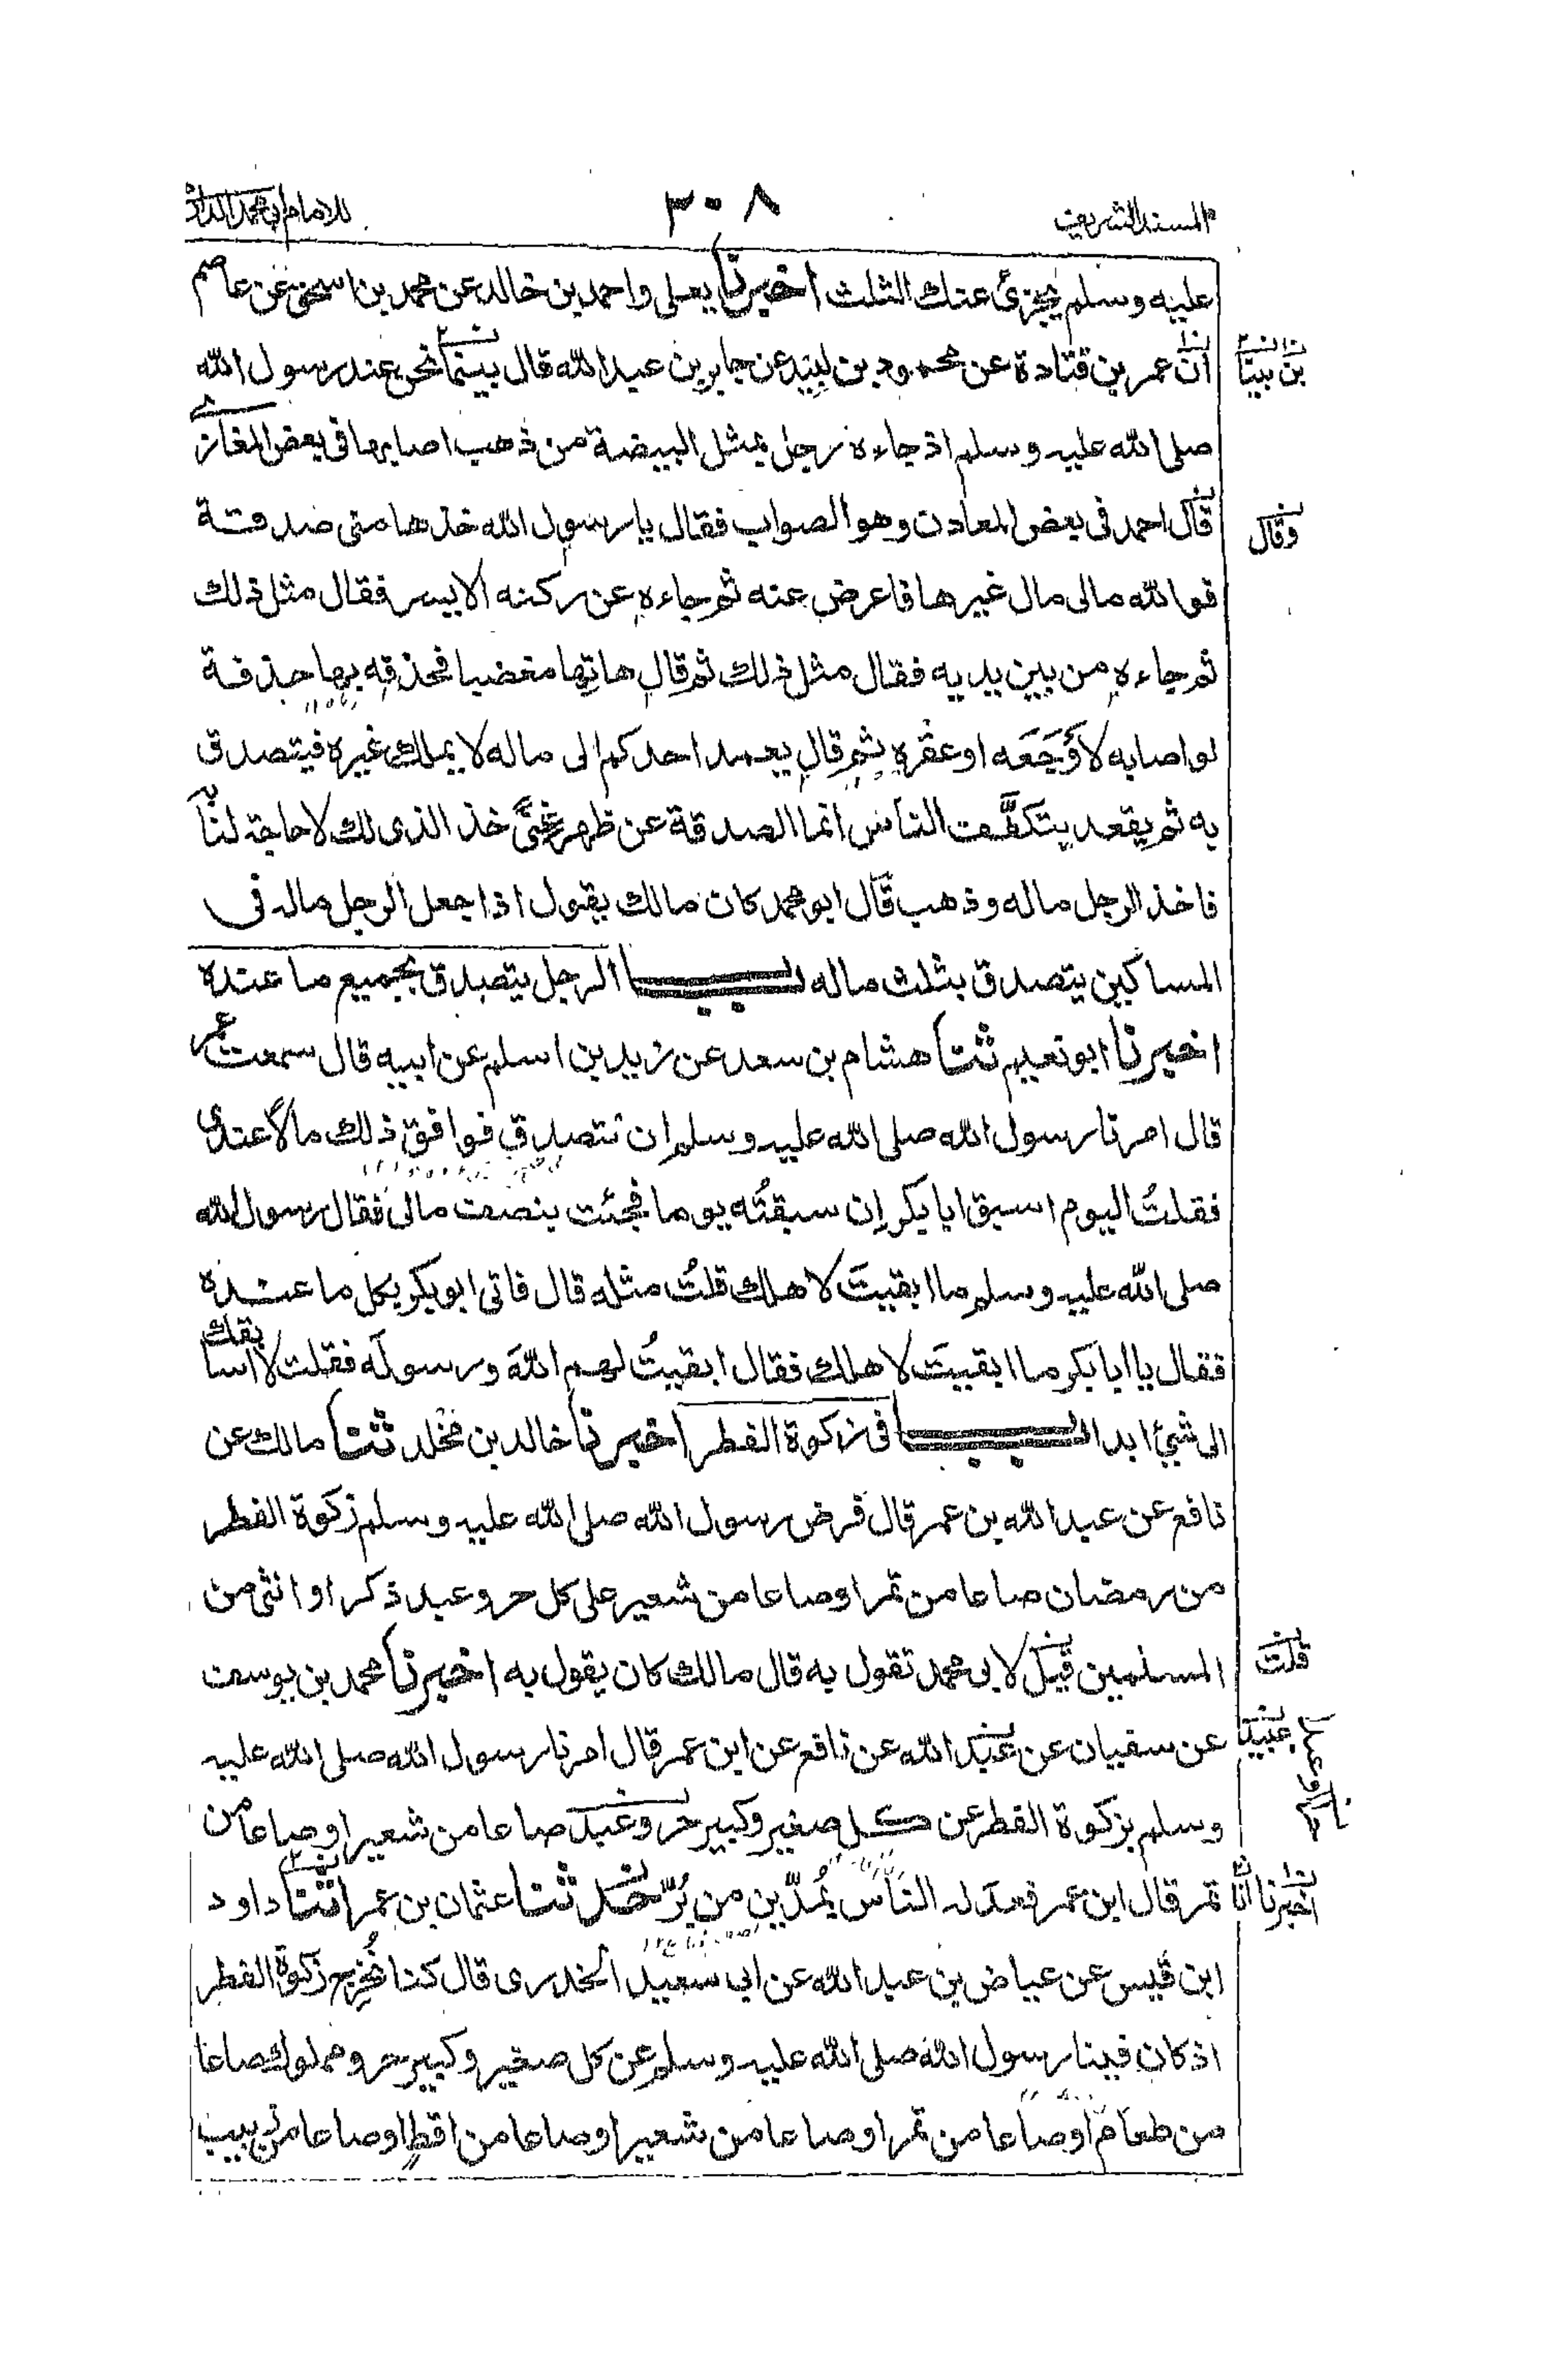 المسند الشريف ٣٠٨ للامام ابي محمد الدار
عليه وسلم يجزئ عنك الثلث اخبرنا يعلى واحمد بن خالد عن محمد بن اسحق عن عاصم
ان عمر بن قتادة عن محمود بن لبيد عن جابر بن عبد الله قال بينما نحن عند رسول الله
بن بينا
صلى الله عليه وسلم اذ جاءه رجل بمثل البيضة من ذهب اصابها في بعض المغازي
قال احمد في بعض المعادن وهو الصواب فقال يا رسول الله خذها منى صدقة
وقال
فوالله مالى مال غيرها فاعرض عنه ثم جاءه عن ركنه الايسر فقال مثل ذلك
ثم جاءه من بين يديه فقال مثل ذلك ثم قال هاتها مغضبا فحذفه بها حذفة
لو اصابه لَاَوْجَعَه او عقره ثم قال يعمد احدكم الى ماله لا يملك غيره فيتصدق
به ثم يقعد يتكفَّف الناس انما الصدقة عن ظهر غنًى خذ الذى لك لا حاجة لنا به
فاخذ الرجل ماله وذهب قال ابو محمد كان مالك يقول اذا جعل الرجل ماله فى
المساكين يتصدق بثلث ماله باب الرجل يتصدق بجميع ما عنده
اخبرنا ابو نعيم ثنا هشام بن سعد عن زيد بن اسلم عن ابيه قال سمعت عمر
قال امرنا رسول الله صلى الله عليه وسلم ان نتصدق فوافق ذلك مالًا عندى
فقلتُ اليوم اسبق ابا بكر اِن سبقتُه يوما فجئت بنصف مالى فقال رسول الله
صلى الله عليه وسلم ما ابقيتَ لاهلك قلتُ مثله قال فاتى ابو بكر بكل ما عنده
فقال يا ابا بكر ما ابقيتَ لاهلك فقال ابقيتُ لهم اللهَ ورسولَه فقلت لا اسابقك
الى شيئ ابدا باب فى زكوة الفطر اخبرنا خالد بن مَخْلد ثنا مالك عن
نافع عن عبد الله بن عمر قال فرض رسول الله صلى الله عليه وسلم زكوة الفطر
من رمضان صاعا من تمر او صاعا من شعير على كل حر وعبد ذكر او انثى من
المسلمين قيل لابى محمد تقول به قال مالك كان يقول به اخبرنا محمد بن يوسف
قلت
عن سفيان عن عبد الله عن نافع عن ابن عمر قال امرنا رسول الله صلى الله عليه
عبيد
وسلم بزكوة الفطر عن كل صغير وكبير حر وعبد صاعا من شعير او صاعا من
تمر قال ابن عمر فعدله الناس بمُدّين من بُرّ ثنا عثمان بن عمر انا ثنا داود
اخبرنا انا
ابن قيس عن عياض بن عبد الله عن ابى سعيد الخدرى قال كنا نُخرِج زكوة الفطر
اذ كان فينا رسول الله صلى الله عليه وسلم عن كل صغير وكبير حر ومملوك صاعا
من طعام او صاعا من تمر او صاعا من شعير او صاعا من اقط او صاعا من زبيب